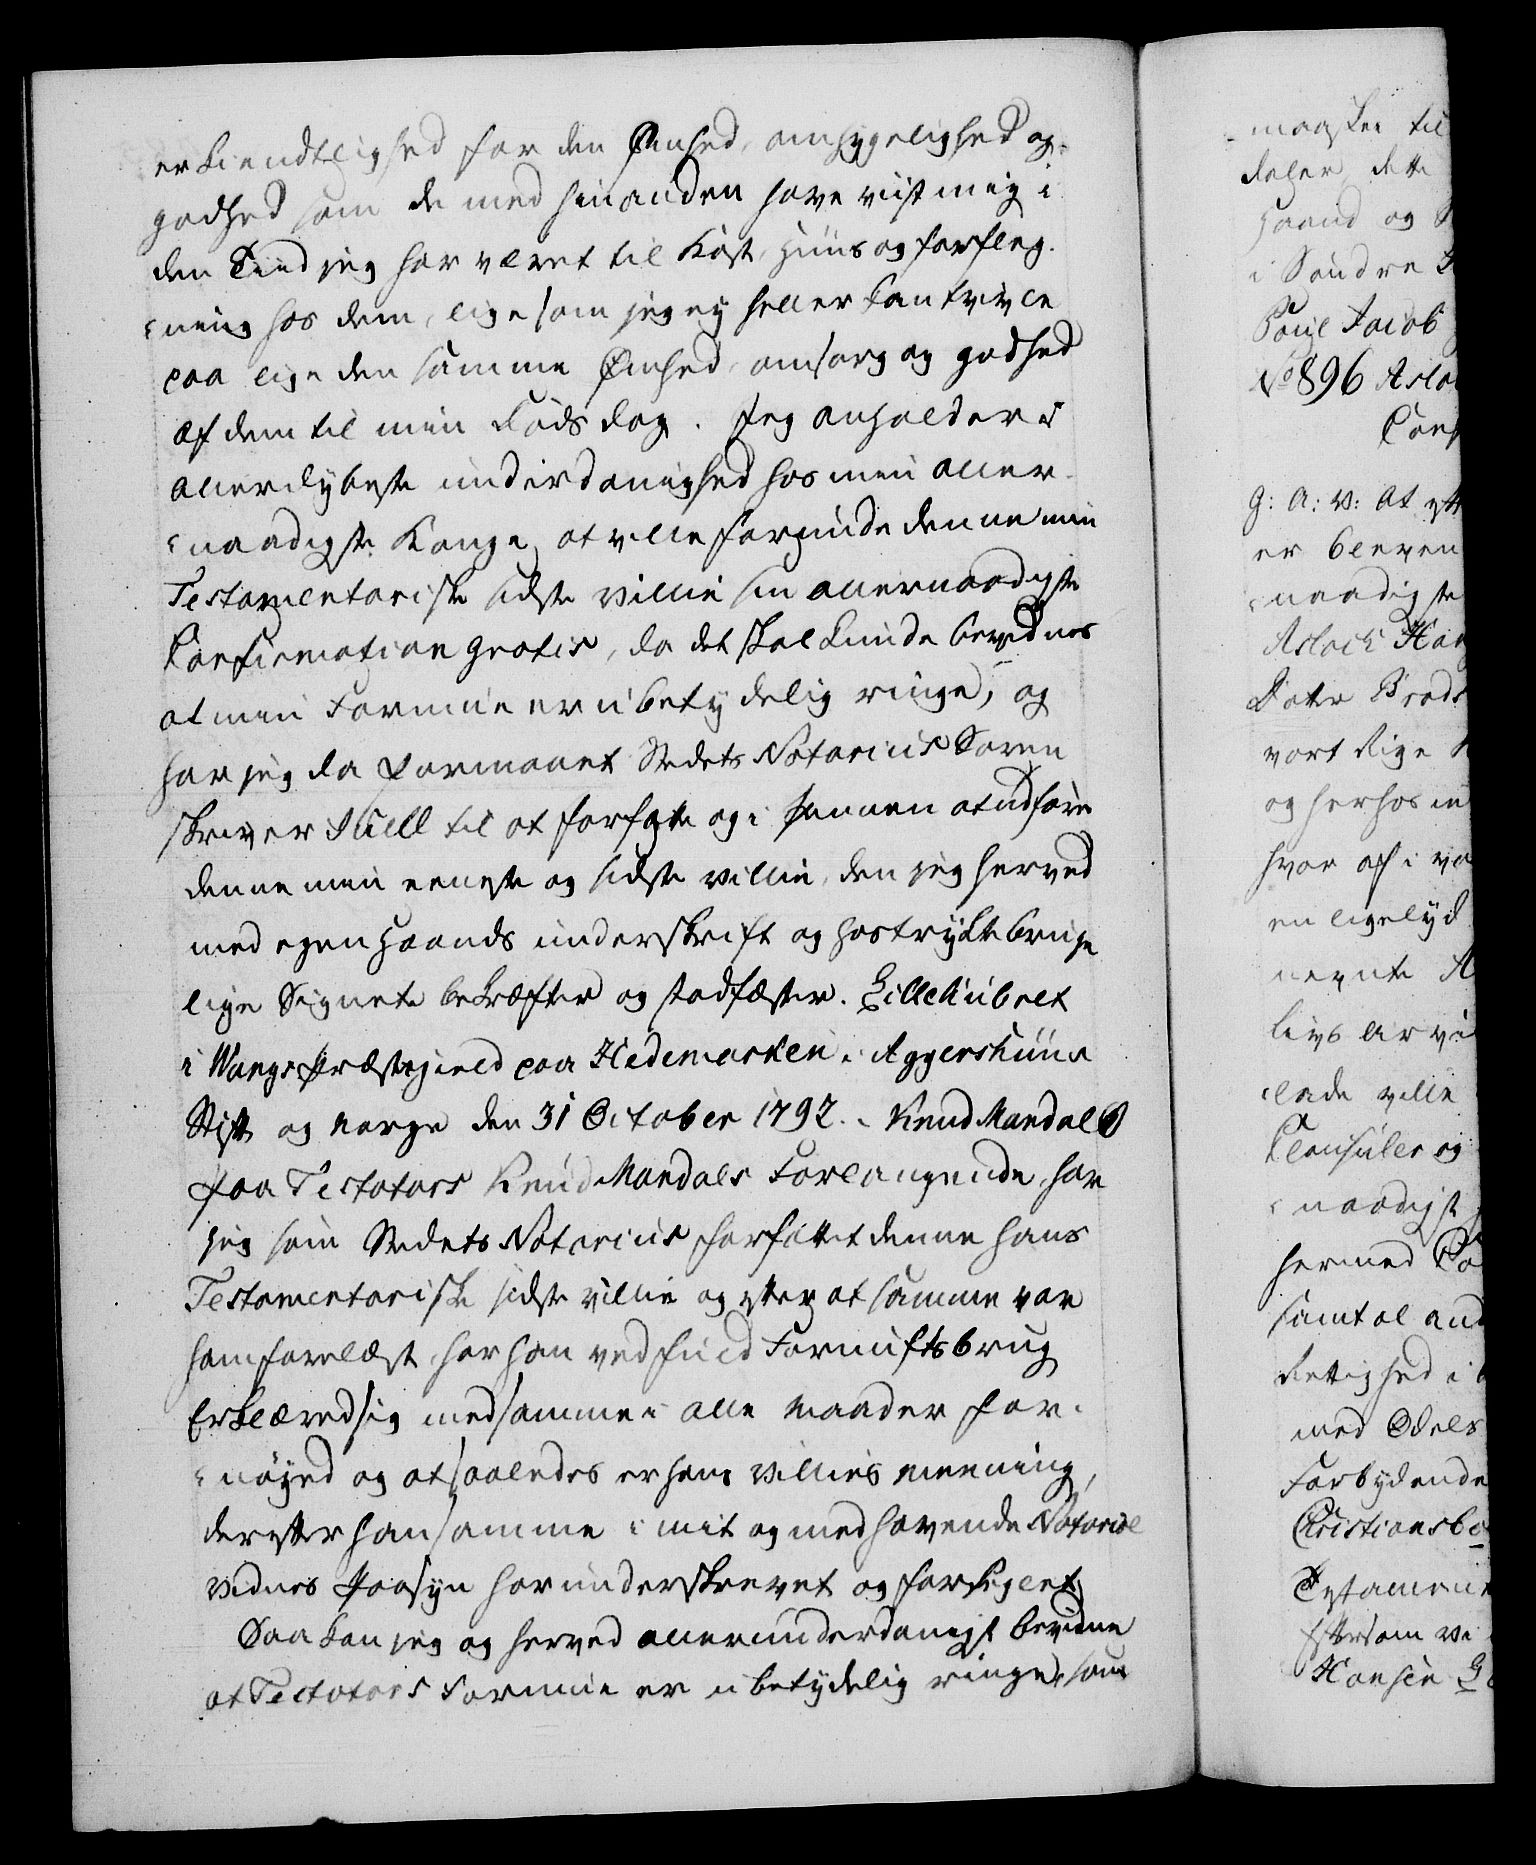 erkiendtlighed for den Ømhed, omhygelighed og
godhed som de med hinanden have viist mig i
den Tiid jeg har været til Kost, Huus og forfleg-
ning hos dem, lige som jeg ey heller kan tvivle
paa lige den samme Ømhed, omsorg og godhed
af dem til min Døds dag. Jeg anholder i
allerdybeste underdanighed hos min aller-
naadigste Konge, at ville forunde denne min
Testamentariske sidste Villie sin allernaadigste
Confirmation gratis, da det skal kunde bevidnes
at min Formue er ubetydelig ringe, og
har jeg da formaaet Stedets Notarius Soren
skriver Juell til at forfatte og i pennen at udføre
denne min eeneste og sidste villie, den jeg herved
med egen Haands underskrift og hostrykte brug-
lige Signete bekræfter og stadfæster. Lille Kubret
i Wangs Præstegield paa Hedemarken i Aggershuus
Stift og Norge den 31 October 1792. Knud Mandal
Paa Testators Knud Mandals Forlangende, har
jeg som Stedets Notarius forfattet denne hans
Testamentariske sidste villie og efter at samme var
ham forelæst, har han ved fuld Fornufts brug
Erklæred sig med samme i alle Maader for-
nøyed og at saaledes er hans Villies meening,
derefter han samme i mit og medhavende Notarial
Vidnes Paasyn har underskrevet og forseglet,
Saa kan jeg og herved allerunderdanigst bevidne
at Testators Formue er ubetydelig ringe, som
maaskee til
daler dette
Haand og
i Søndre
Poul Jacob
No 896 Asla
Conf
G: A: V: At
er bleven
naadigste
Aslack Han
Datter Brads
vort Rige
og herhos in
hvor af i vo
en ligelyd
nevnte A
livs arvi
lade ville
Clausuler og
naadigst
hermed Co
samt al and
Rettighed i
med Odels
Forbydende
Christiansbo
Testamente
Eftersom vi
Hansen